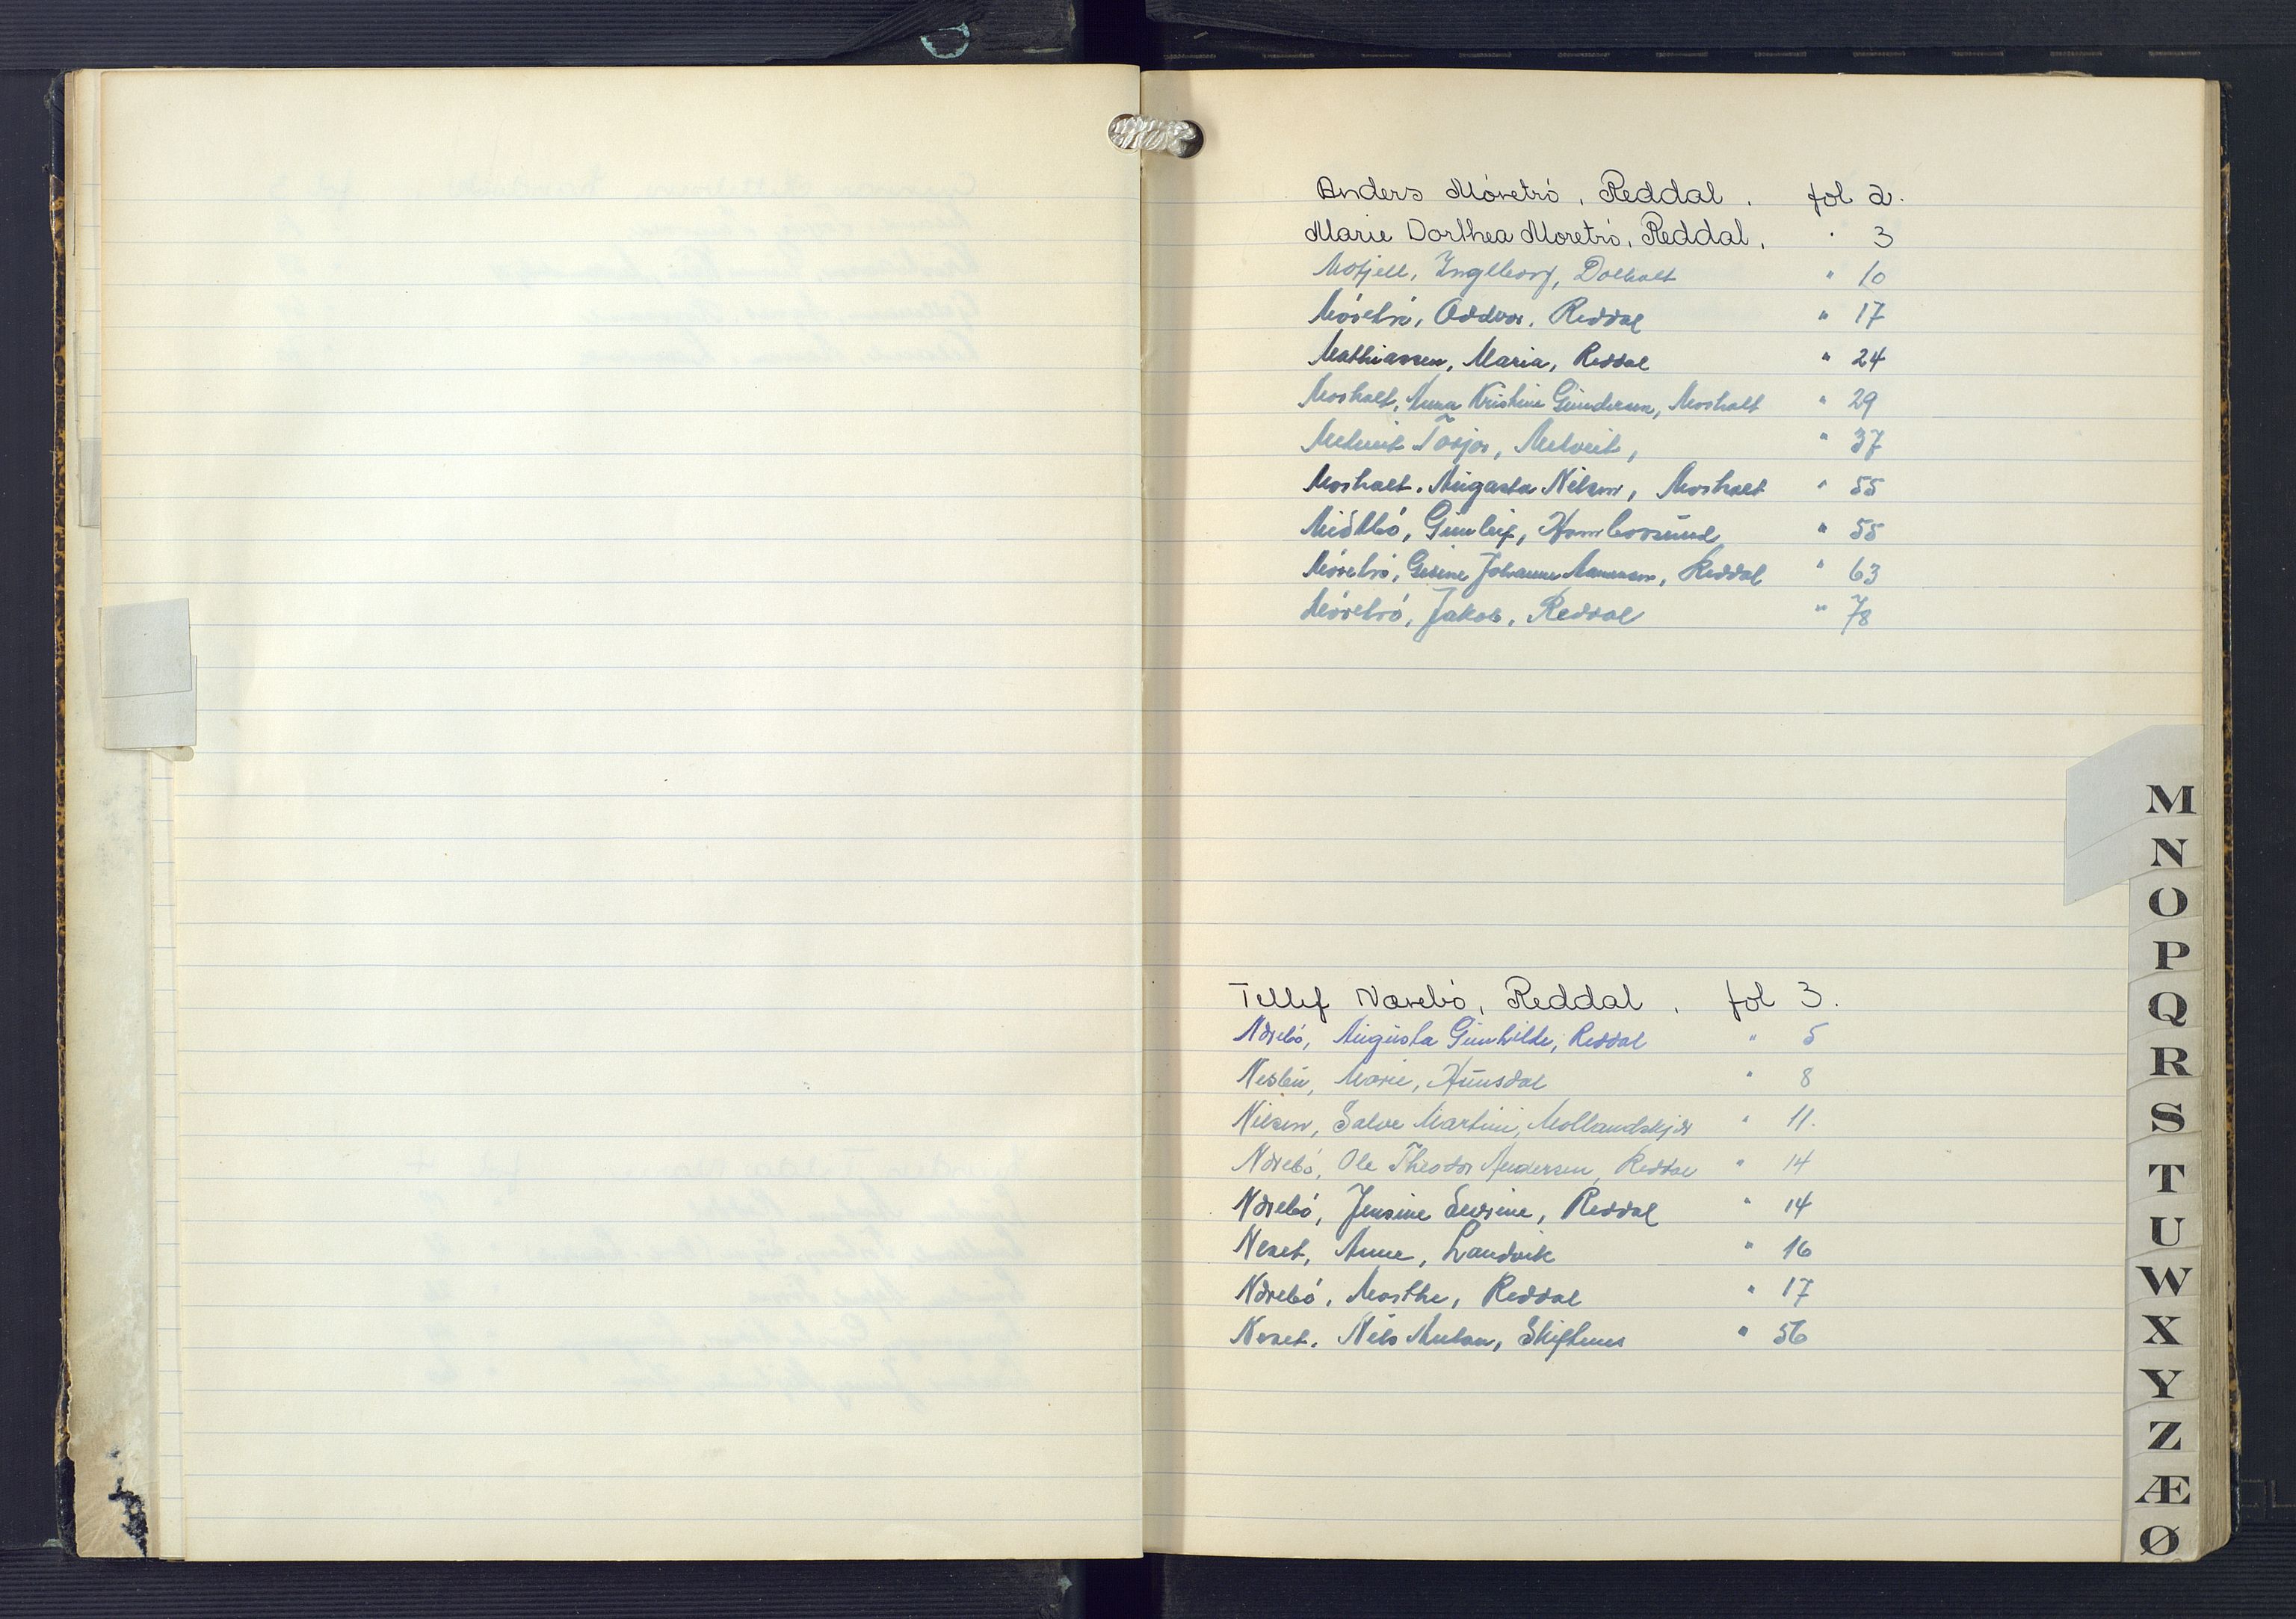 Anders Móretró, Reddal. fol 2.
Marie Dorthea Moretró, Reddal. " 3
Mofjell, Ingeborg, Dolholt " 10
Móretró, Oddvar, Reddal " 17
Mathiassen, Maria, Reddal " 24
Mosholt, Anna Kristine Gundersen, Mosholt " 29
Melveit Torjor, Melveit, " 37
Mosholt, Augusta Nilsen, Mosholt " 55
Midtbó, Gunleif, Homborsund " 55
Móretró, Gesine Johanne Aanonsen, Reddal " 63
Móretró, Jakob, Reddal " 78
Tellef Nærebó, Reddal. fol 3.
Nærebó, Augusta Gunhilde, Reddal " 5
Nesbu, Marie, Hunsdal " 8
Nilsen, Salve Martini, Mollandskjær " 11.
Nærebó, Ole Theodor Andersen, Reddal " 14
Nærebó, Jensine Severine, Reddal " 14
Neset, Anne, Landvik " 16
Nærebó, Marthe, Reddal " 17
Neset, Nils Anton, Skiftenes " 56
M
N
O
P
Q
R
S
T
U
W
X
Y
Z
Æ
Ø